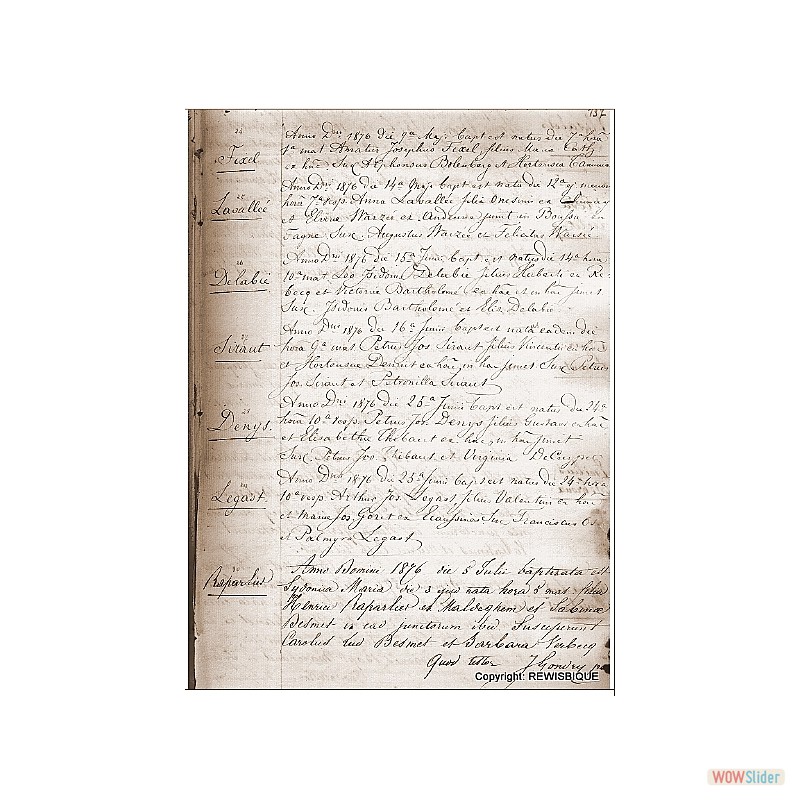 137
24
Fixel
Anno Dni 1876 die 9a Maji bapt est natus die 7a hora
1a mat Amatus Josephus Fixel filius Maria
ex hac Susc Alphonsus et Hortensia
25
Lavallée
Anno Dni 1876 die 14a Maji bapt est nata die 12a
hora 7a vesp. Anna Lavallée filia Onesimi ex
et Elviræ Warzée ex Andenne junct in
Fagne Susc. Augustus Warzée et Felicitas Warzée
26
Delabie
Anno Dni 1876 die 15a Junii bapt est natus die 14a hora
10a mat Leo Isidorus Delabie filius Huberti ex Re
becq et Victoriæ Bartholomé ex hac et in hac junct
Susc. Isidorus Bartholomé et Elis. Delabie
27
Siraut
Anno Dni 1876 die 16a Junii bapt est natus eadem die
hora 9a mat Petrus Jos Siraut filius Vincentii ex hac
et Hortensiæ ex hac, in hac junct Susc Petrus
Jos. Siraut et Petronilla Siraut
28
Denys.
Anno Dni 1876 die 25a Junii bapt est natus die 24a
hora 10a vesp. Petrus Jos. Denys filius Gustavi ex hac
et Elisabethæ Thibaut ex hac, in hac junct
Susc. Petrus Jos. Thibaut et Virginia DeCuyper
29
Legast
Anno Dni 1876 die 25a Junii bapt est natus die 24a hora
10a vesp Arthur Jos. Legast filius Valentini ex hac
et Mariæ Jos. Goret ex Ecaussines Susc Franciscus
et Palmyra Legast
30
Raparlier
Anno Domini 1876 die 5 Julii baptizata est
Sydonica Maria die 3 ejusd nata hora 6 mat. filia
Henrici Raparlier ex Maldeghem et Sabinæ
Desmet in ead junctorum ibid. Susceperunt
Carolus Lud Desmet et Barbara Verbecq
Quod testor J Gondry
Copyright: REWISBIQUE
WOWSlider